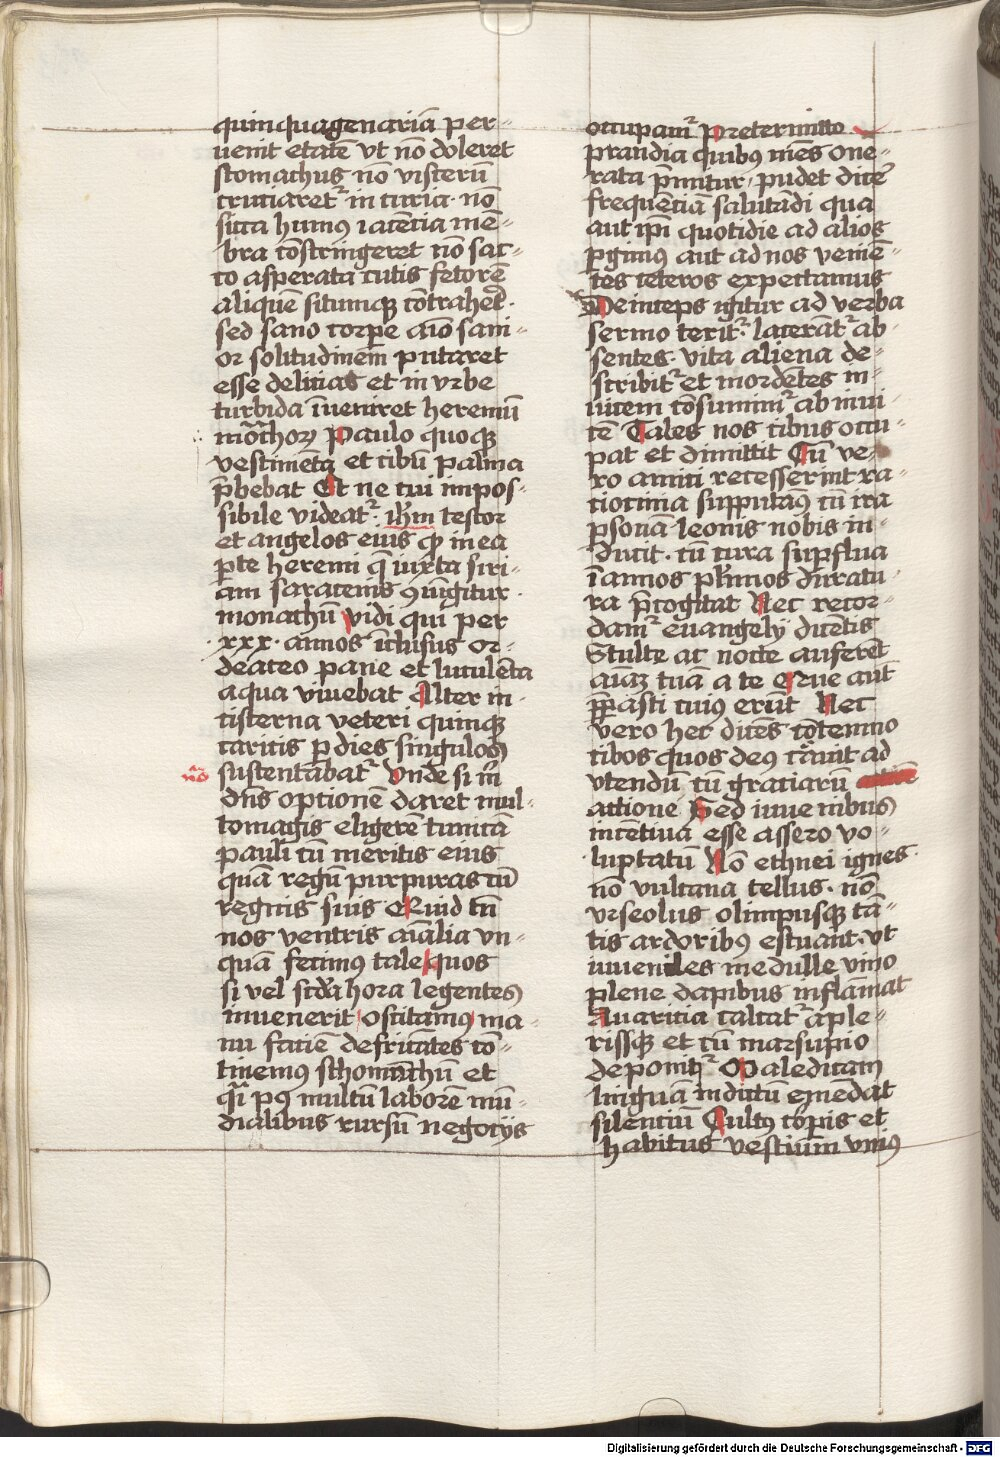 quinquagenariā per-
uenit etatē vt nō doleret
stomachus nō visterū
cruciaret᷑ in iuria · nō
sicca humꝯ iacēcia mē-
bra cōstringeret nō sac-
co asperata cutis fetorē
aliquē situmqꝫ cōtraheret ·
sed sano corpꝑe aīo sani-
or solitudinem putaret
esse delitias et in vrbe
turbida īueniret heremū
monͣchorꝝ Paulo quoqꝫ
vestimēta et cibū palma
p̄bebat Et ne cui impos-
sibile videat᷑ · ihm̄ testor
et angelos eius ꝙ in ea
ꝑte heremi q̄ iuxta siri-
am saracenis ꝯiūgitur ·
monachū vidi qui per
xxx · annos īclusus or-
deaceo pane et lutulēta
aqua viuebat Alter in
cisterna veteri quinqꝫ
caricis ꝑ dies singulos
sustentabat᷑ Vnde si m̄
dn̄s optionē daret mul-
tomagis eligerē tunicā
pauli cū meritis eius
quā regū purpuras cū
regnis suis Quid tū
nos ventris aīalia vn-
quā fecimꝯ tale quos
si vel scd̄a hora legentes
inuenerit oscitamꝯ ma-
nu faciē defricātes cō-
tinemus sthomachū et
qͣi pꝯ multū laborē mū-
dialibus rursū negocijs
occupam᷑ Pretermitto
prandia quibꝯ mēs one-
rata p̄mitur, pudet dicē
frequēciā salutādi qua
aut ipī quotidie ad alios
ꝑgimꝯ aut ad nos veniē-
tes ceteros expectamus
Deinceps igitur ad verba
sermo terit᷑ · lacerāt᷑ ab-
sentes · vita aliena de-
scribit᷑ et mordētes in-
uicem cōsumim᷑ ab inui-
cē Tales nos cibus occu-
pat et dimittit Cū ve-
ro amici recesserint ra-
ciocinia supputamꝯ cū ira
ꝑsonā leonis nobis in-
ducit · cū cura suꝑflua
ī annos pl̄imos duratu-
ra p̄cogitat Nec recor-
dam᷑ euangelij dicētis
Stulte ac nocte auferēt
aīaꝫ tuā a te Que aut
p̄parasti cuiꝯ erūt Nec
vero hec dicēs cōtemno
cibos quos deꝯ creauit ad
vtendū cū graciarū
actione Sed iuuenibus
incētiua esse assero vo-
luptatū Nō ethnei ignes
nō vulcana tellus · nō
vrseolus olimpusqꝫ tā-
tis ardoribꝯ estuant · vt
iuueniles medulle vino
plene dapibus inflāmat
Auaricia calcat᷑ a ple-
risqꝫ et cū marsupio
deponit᷑ Maledicam
linguā indictū emēdat
silentiū Cultꝯ corꝑis et
habitus vestium vniꝯ